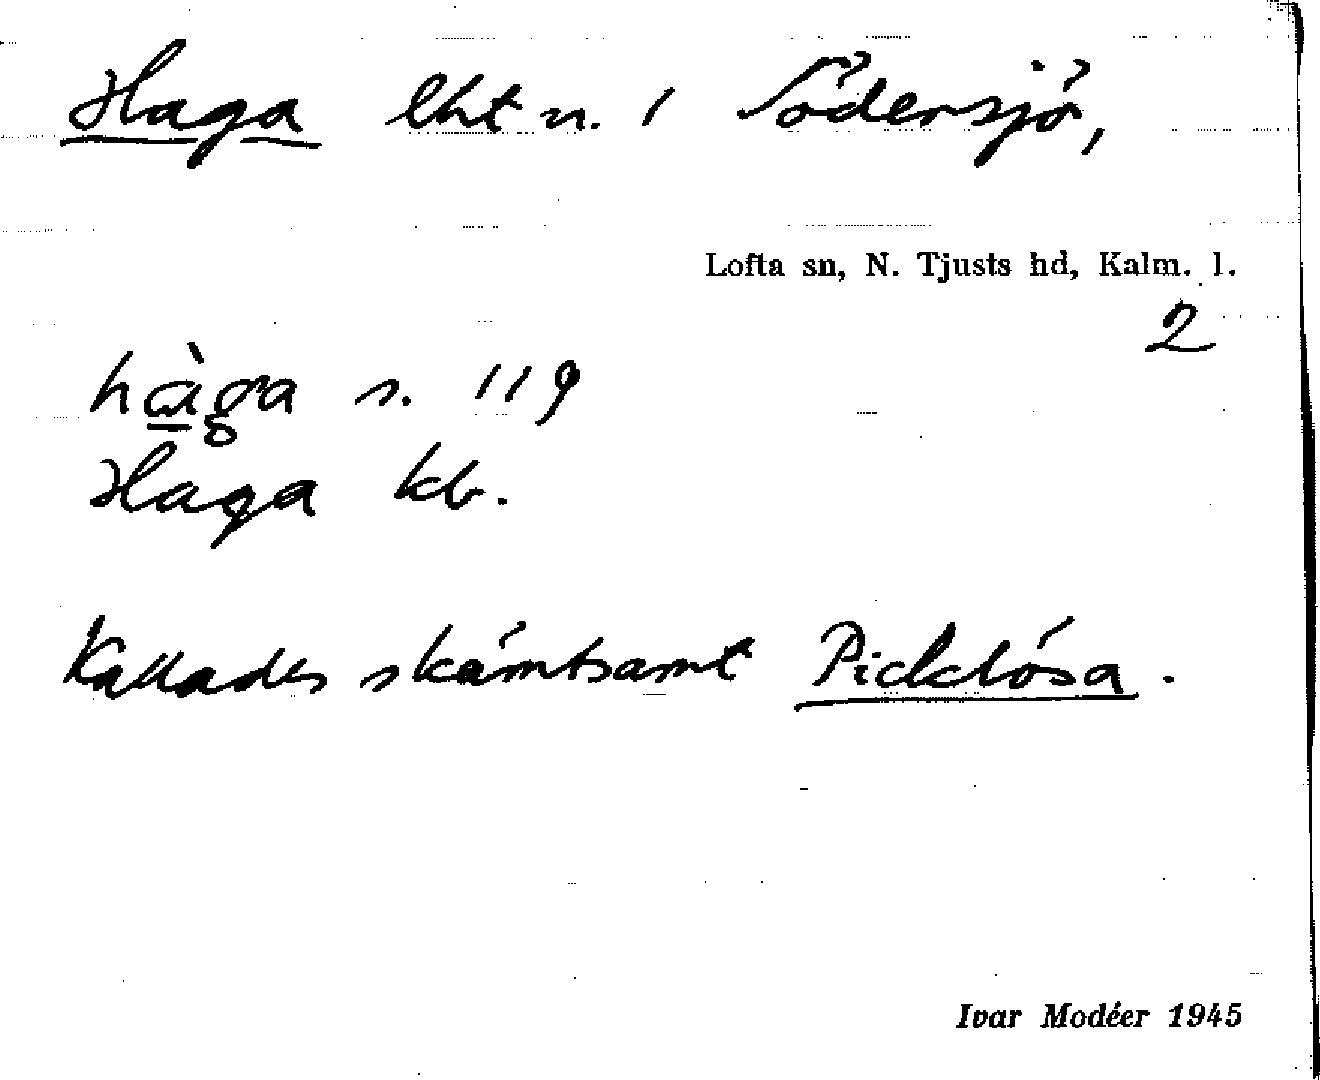 Haga lht n. i Södersjö,
Lofta sn, N. Tjusts hd, Kalm. l.
2
hàga s. 119
Haga kb.
Kallades skämtsamt Picklösa.
Ivar Modéer 1945